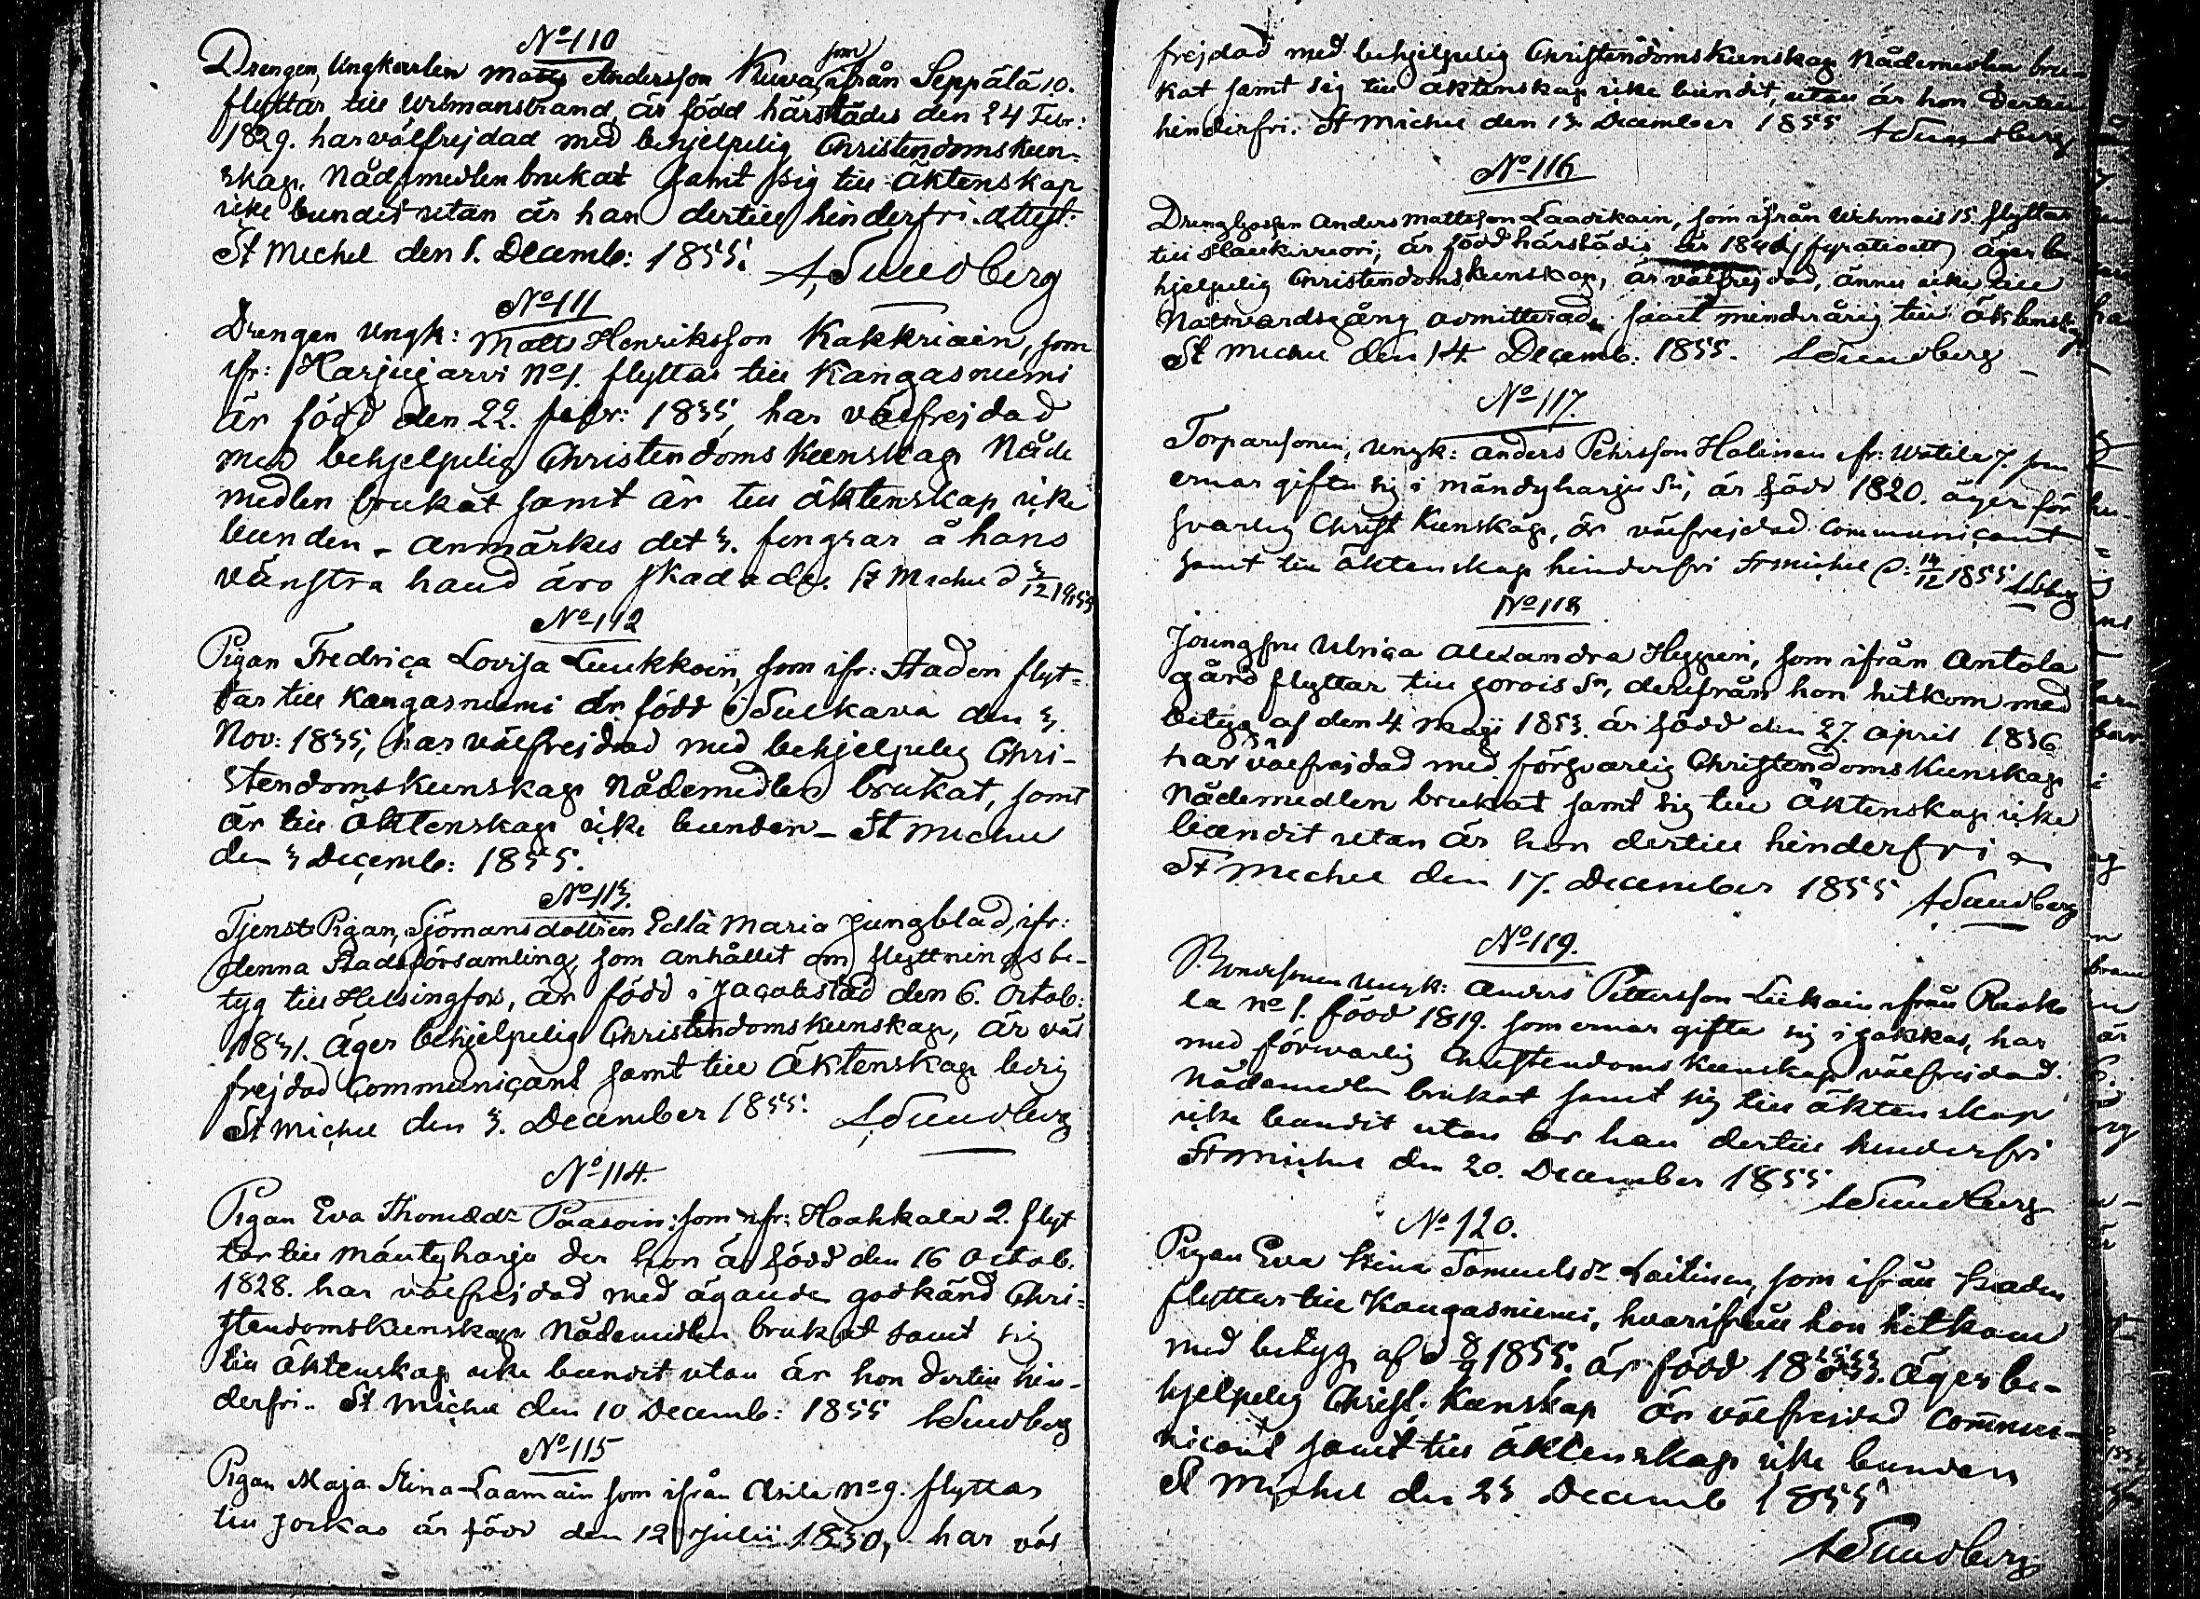 No 110
Drengen, Ungkarlen Matts Andersson Kuva, som ifrån Seppälä 10.
flyttar till Wilmanstrand, är född härstädes den 24 Febr:
1829. har välfrejdad med behjelpelig Christendomskun-
skap, Nådemedlen brukat samt sig till äktenskap
icke bundit utan är han dertill hinderfri. attest:
St Michel den 1. Decemb: 1855. A, Sundberg
No 111
Drengen Ungk: Matts Henriksson Kakkriain, som
ifr: Harjujarvi No 1. flyttar till Kangasniemi
är född den 22. febr: 1835, har välfrejdad
med behjelpelig Christendoms Kunskap Nåde
medlen brukat samt är till äktenskap icke
bunden – anmärkes det 3. fingrar å hans
vänstra hand äro skadade. St Michel d 3/12 1855
No 112
Pigan Fredrica Lovisa Luukkoin, som ifr: Staden flyt-
tar till Kangasniemi är född i Sulkava den 3.
Nov: 1835, har välfrejdad med behjelpelig Chri-
stendomskunskap Nådemedlen brukat, samt
är till äktenskap icke bunden – St Michel
den 3 Decemb: 1855.
No 113.
Tjenst Pigan, Sjömansdottren Edla Maria Jungblad, ifr:
denna Stadsförsamling, som anhållit om flyttningsbe-
tyg till Helsingfors, är född i Jacobstad den 6. Octob:
1831. äger behjelpelig Christendomskunskap, är väl
frejdad Communicant samt till äktenskap ledig
St Michel den 3. December 1855. A Sundberg
No 114.
Pigan Eva Thomædr Paasoin, som ifr: Haahkala 2. flyt
tar till Mäntyharju der hon är född den 16 Octob.
1828. har välfrejdad med ägande godkänd Chri-
stendomskunskap Nådemedlen brukat samt sig
till äktenskap icke bundit utan är hon dertill hin-
derfri. St Michel den 10 Decemb: 1855 A Sundberg
No 115
Pigan Maja Stina Laamain som ifrån Asila No 9. flyttar
till Jockas är född den 12 Julii 1830, har väl
frejdad med behjelpelig Christendomskunskap Nådemedlen bru-
kat samt sig till äktenskap icke bundit, utan är hon dertill
hinderfri. St Michel den 13. December 1855 A Sundberg
No 116
Drenggossen Anders Mattsson Laadikain, som ifrån Wihmais 15. flyttar
till, är född härstädes år 1848 (fyratioått) äger be-
hjelpelig Christendoms kunskap, är välfrejdad, ännu icke till
Nattvardsgång admitterad, samt minderårig till äktenskap
St Michel den 14 Decemb: 1855. A Sundberg
No 117.
Torparesonen, Ungk: Anders Pehrsson Halinen ifr: Watila 7. som
ernar gifta sig i Mändyharju Sn, är född 1820. äger för
svarlig Christ Kunskap, är välfrejdad communicant
samt till äktenskap hinderfri St Michel d: 14/12 1855 ASberg
No 118
Joungfru Ulrica Alexandra Heggen, som ifrån Antola
gård flyttar till Jorois Sn, derifrån hon hitkom med
betyg af den 4 Maji 1853. är född den 27. april 1836
har välfrejdad med försvarlig Christendoms Kunskap
Nådemedlen brukat samt sig till Äktenskap icke
bundit utan är hon dertill hinderfri
St Michel den 17. December 1855 A Sundberg
No 119.
Bondesonen Ungk: Anders Pettersson Liekain ifrån Rasko
la No 1. född 1819. som ernar gifta sig i Jokkas, har
med försvarlig Christendoms Kunskap välfrejdad.
Nådemedlen brukat samt sig till äktenskap
icke bundit utan är han dertill hinderfri
St Michel den 20. December 1855
A Sundberg
No 120.
Pigan Eva Stina Samuelsdr Laitinen, som ifrån Staden
flyttar till Kangasniemi, hvarifrån hon hitkom
med betyg af d 8/9 1855. är född 18. äger be-
hjelpelig Christ. Kunskap är välfrejdad commu-
nicant samt till äktenskap icke bunden
St Michel den 23 Decemb 1855
A Sundberg